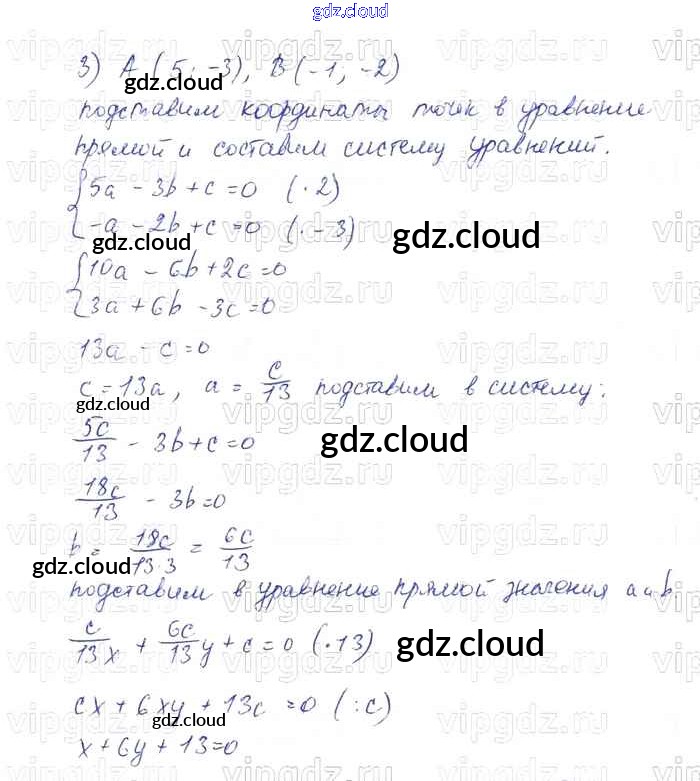 gdz.cloud
3) A (5; -3), B (-1; -2)
gdz.cloud
подставим координаты точек в уравнение
прямой и составим систему уравнений.
{5a - 3b + c = 0 (· 2)
{-a - 2b + c = 0 (· - 3)
gdz.cloud
gdz.cloud
{10a - 6b + 2c = 0
{3a + 6b - 3c = 0
13a - c = 0
c = 13a, a = c/13 подставим в систему:
gdz.cloud
5c/13 - 3b + c = 0
gdz.cloud
18c/13 - 3b = 0
b = 18c/13·3 = 6c/13
gdz.cloud
подставим в уравнение прямой значения a и b.
c/13 x + 6c/13 y + c = 0 (· 13)
gdz.cloud
cx + 6xy + 13c = 0 (: c)
gdz.cloud
x + 6y + 13 = 0